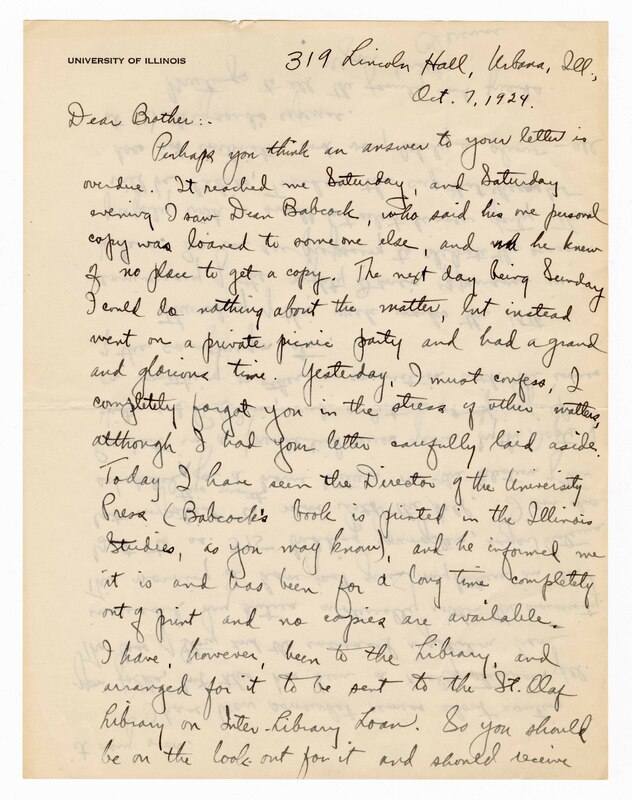 UNIVERSITY OF ILLINOIS
319 Lincoln Hall, Urbana, Ill.,
Oct. 7, 1924.
Dear Brother:-
Perhaps you think an answer to your letter is
overdue. It reached me Saturday, and Saturday
evening I saw Dean Babcock, who said his one personal
copy was loaned to someone else, and he knew
of no place to get a copy. The next day being Sunday
I could do nothing about the matter, but instead
went on a private picnic party and had a grand
and glorious time. Yesterday, I must confess, I
completely forgot you in the stress of other matters,
although I had your letter carefully laid aside.
Today I have seen the Director of the University
Press (Babcock's book is printed in the Illinois
Studies, as you may know), and he informed me
it is and has been for a long time completely
out of print and no copies are available.
I have, however, been to the Library, and
arranged for it to be sent to the St. Olaf
Library on Inter-Library Loan. So you should
be on the look-out for it and should receive